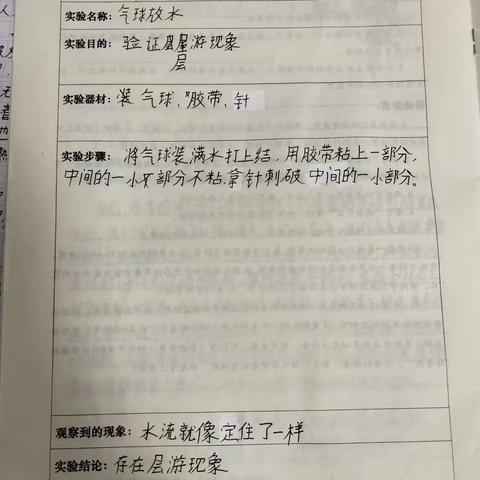 实验名称：气球放水
实验目的：验证层游现象
层
实验器材：装 气球、胶带、针
实验步骤：将气球装满水打上结，用胶带粘上一部分，
中间的一小部分不粘.拿针刺破 中间的一小部分。
观察到的现象：水流就像定住了一样
实验结论：存在层游现象